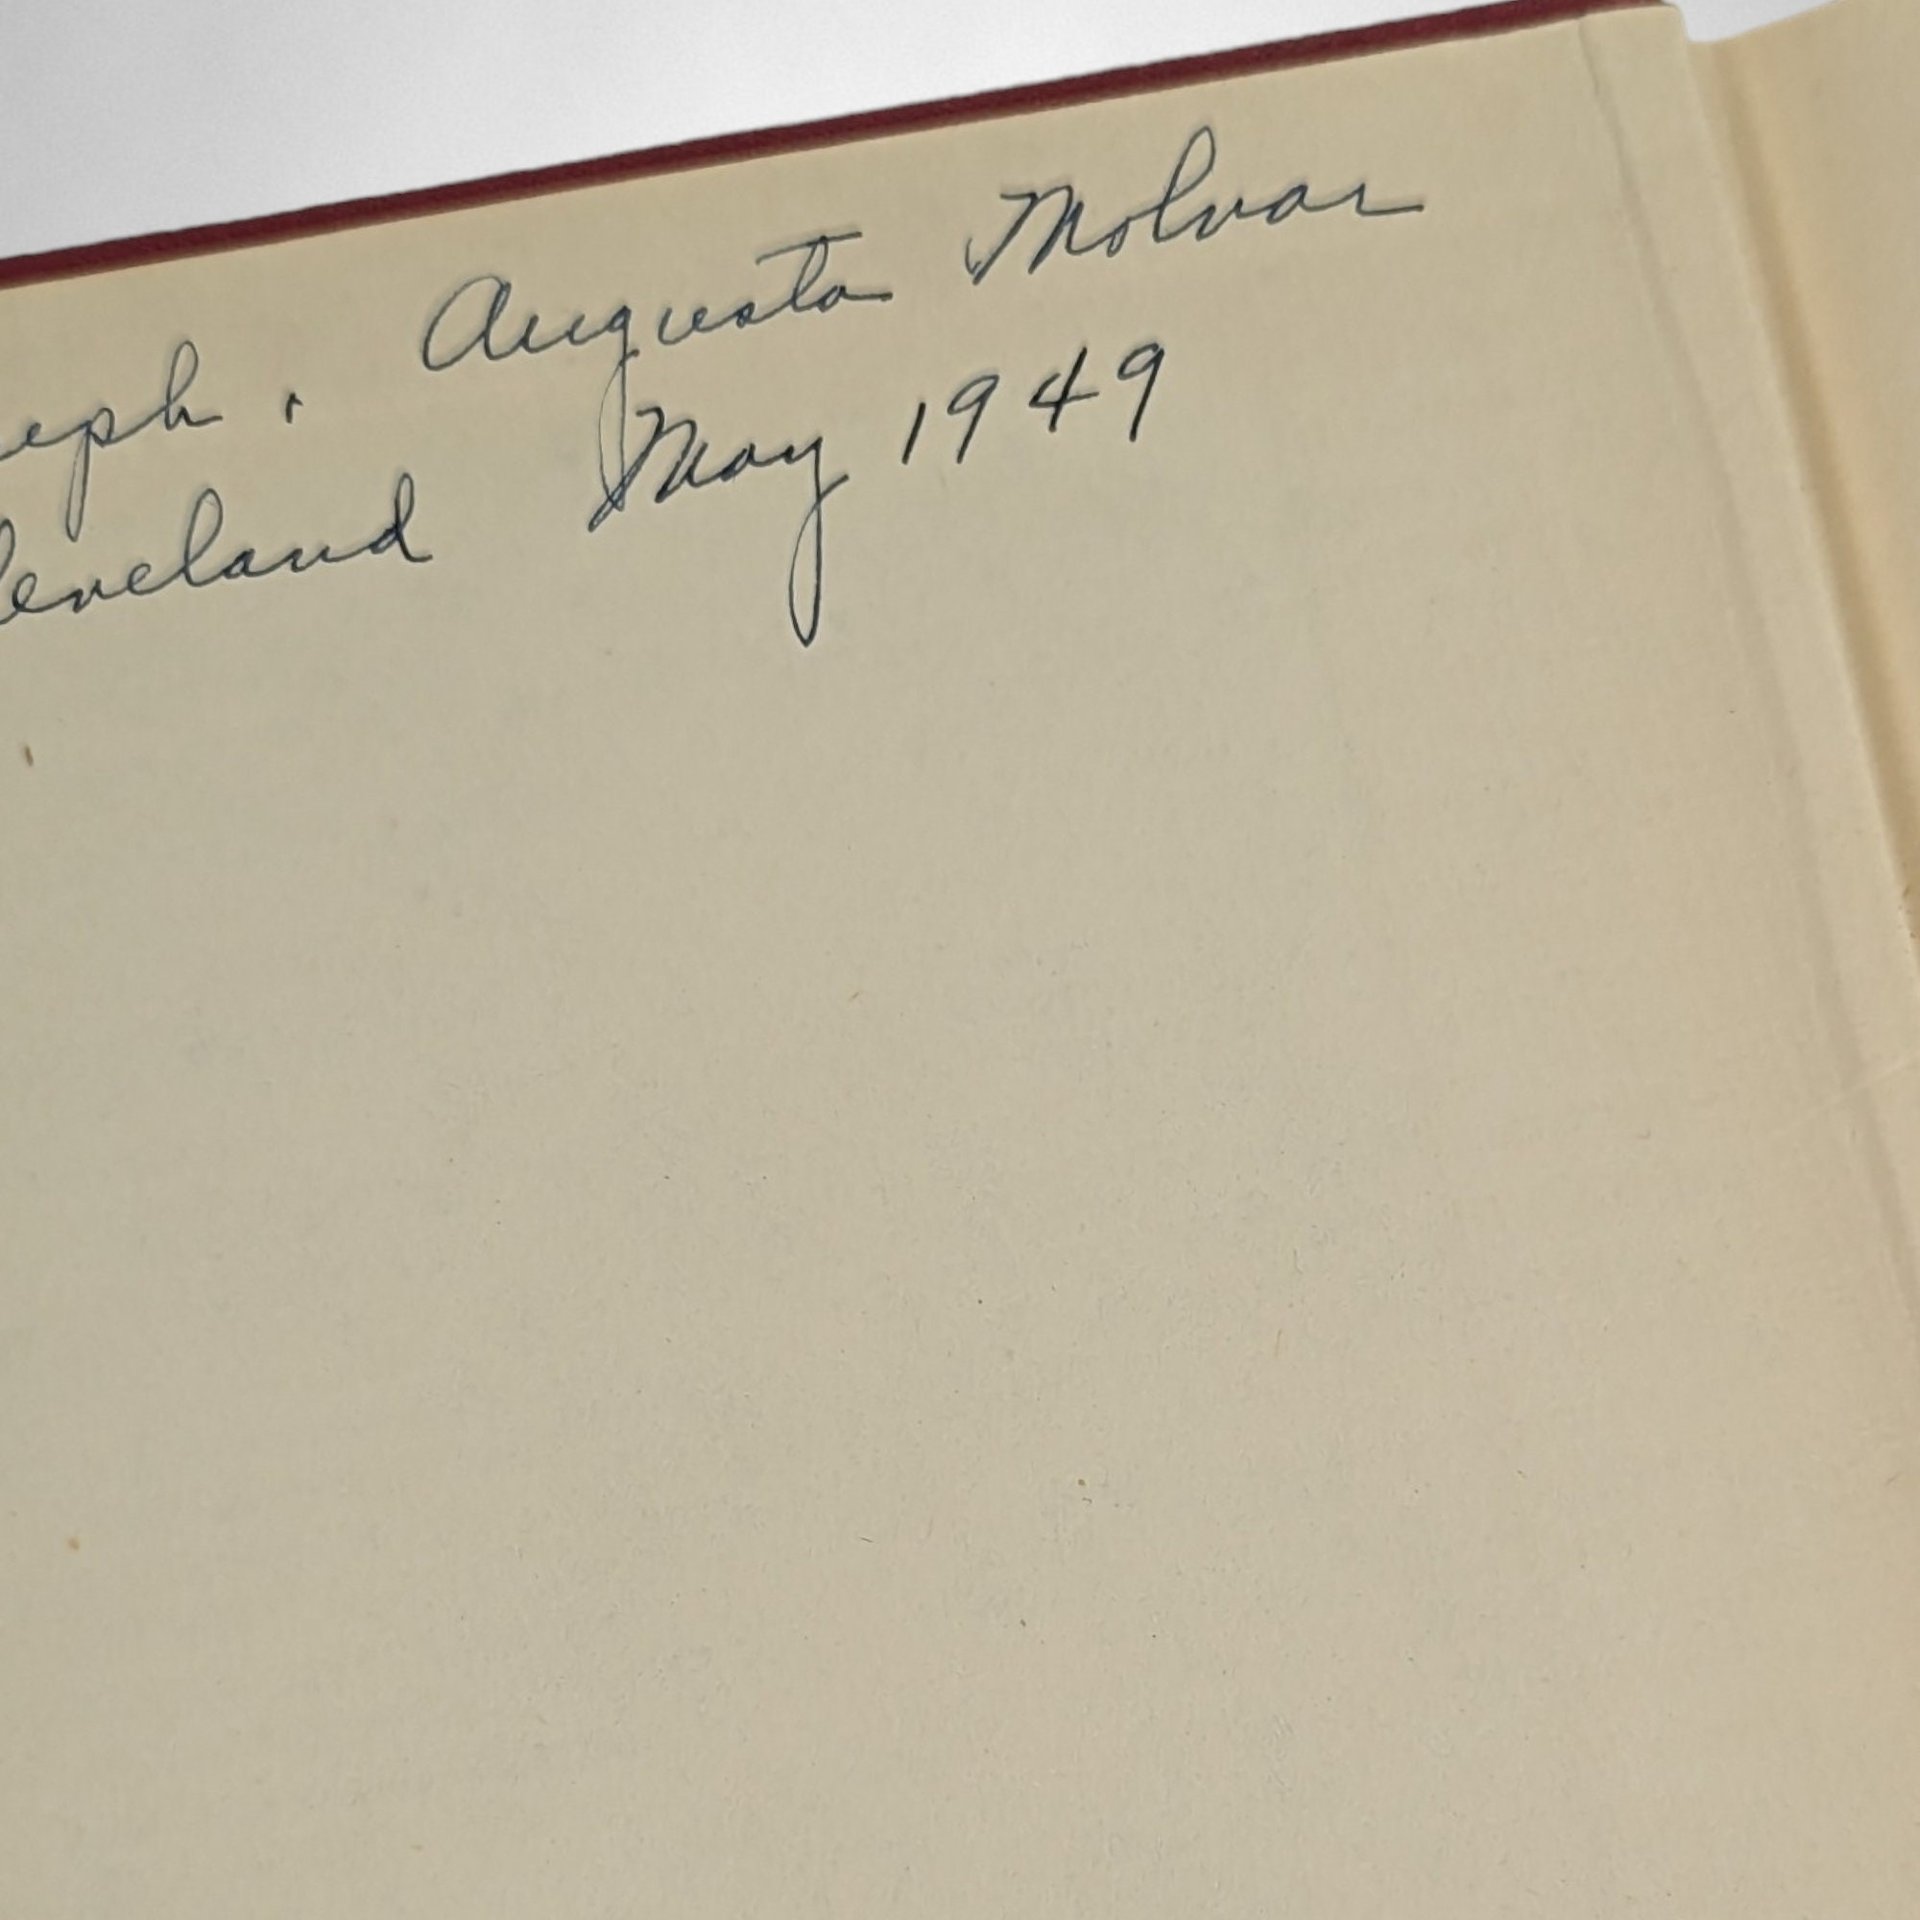 eph. Augusta Molvar
leveland May 1949